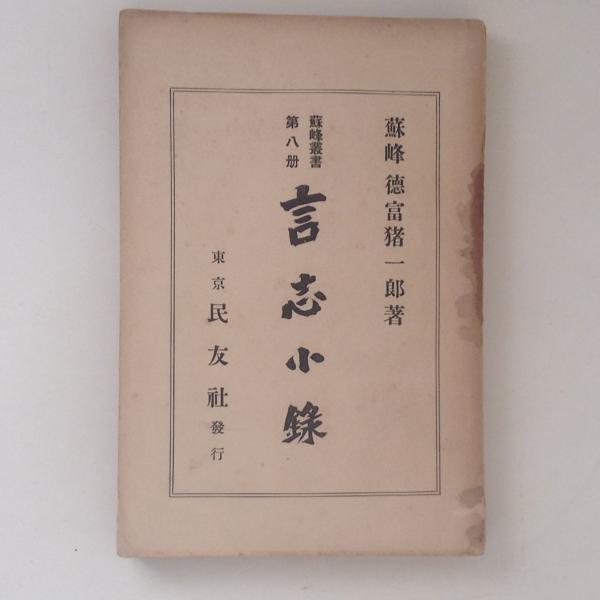 蘇峰 德富猪一郎著
蘇峰叢書
第八册
言志小錄
東京 民友社 發行